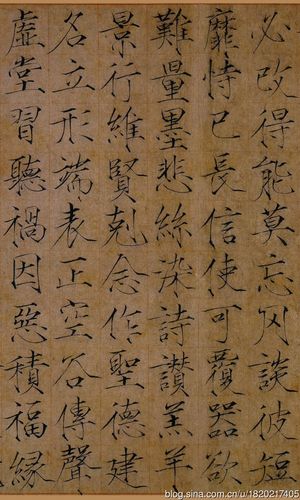 必改得能莫忘罔談彼短
靡恃己長信使可覆器欲
難量墨悲絲染詩讚羔羊
景行維賢剋念作聖德建
名立形端表正空谷傳聲
虛堂習聽禍因惡積福緣
blog.sina.com.cn/u/1820217405